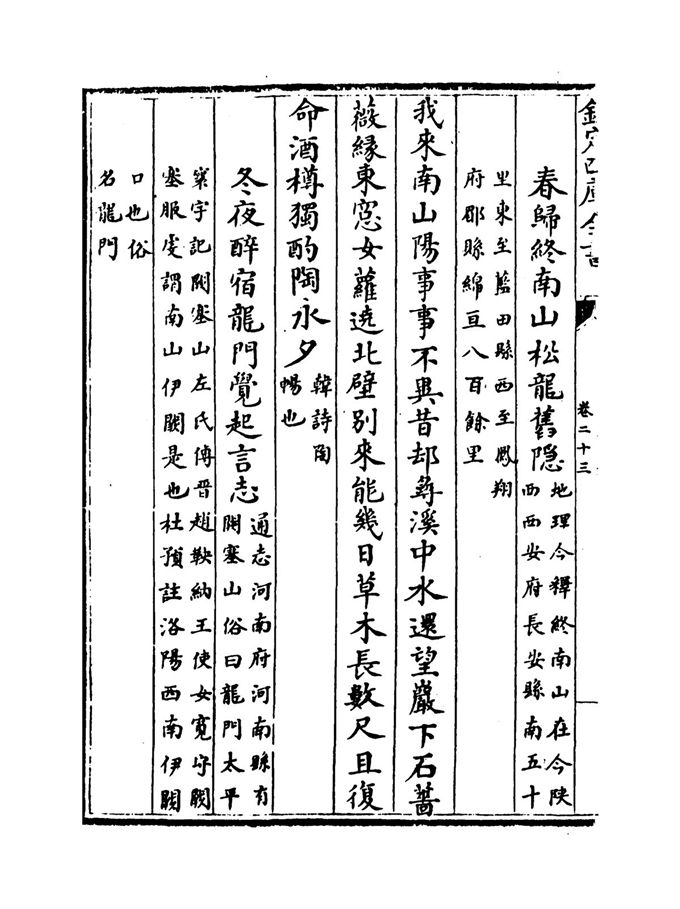 欽定四庫全書
卷二十三
春歸終南山松龍舊隠地理今釋終南山在今陜
西西安府長安縣南五十
里東至藍田縣西至鳳翔
府郡縣綿亘八百餘里
我來南山陽事事不異昔却尋溪中水還望巖下石薔
薇緣東窓女蘿遶北壁別來能幾日草木長數尺且復
命酒樽獨酌陶永夕韓詩陶
暢也
冬夜醉宿龍門覺起言志通志河南府河南縣有
闕塞山俗曰龍門太平
寰宇記闕塞山左氏傳晉趙鞅納王使女寛守闕
塞服䖍謂南山伊闕是也杜預註洛陽西南伊闕
口也俗
名龍門